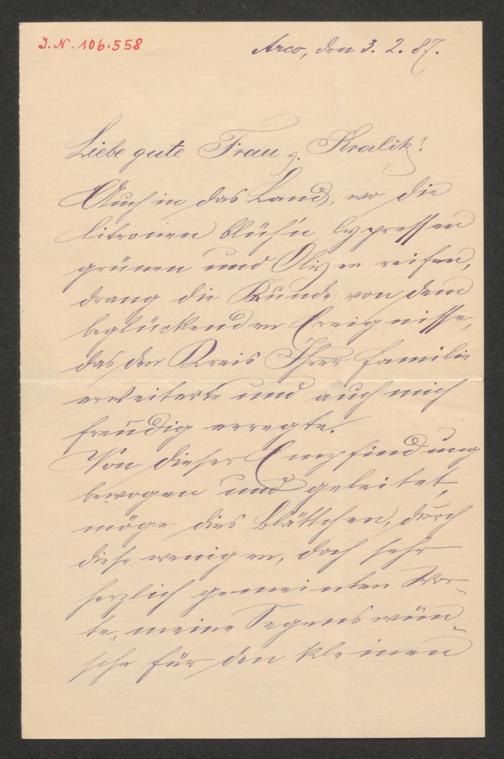 J.N. 106.558
Arco, den 3. 2. 87.
Liebe gute Frau v. Kralik!
Auch in das Land, wo die
Citronen blüh'n, Cypressen
grünen und Oliven reifen,
drang die Kunde von dem
beglückenden Ereignisse,
das den Kreis Ihrer Familie
erweiterte und auch mich
freudig erregte.
Von dieser Empfindung
bewogen und geleitet,
möge dies Blättchen, durch
diese wenigen, doch sehr
herzlich gemeinten Wor-
te, meine Segenswün-
sche für den kleinen